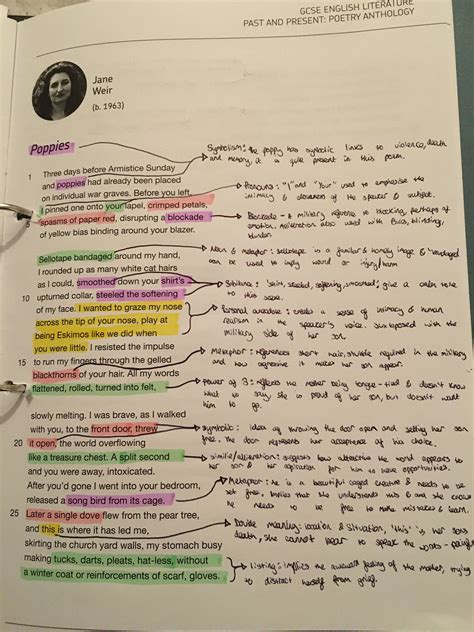 GCSE ENGLISH LITERATURE
PAST AND PRESENT: POETRY ANTHOLOGY
Jane
Weir
(b. 1963)
Symbolism: the poppy has symbolic links to violence, death
Poppies
and memory, it is quite present in this poem.
1 Three days before Armistice Sunday
and poppies had already been placed
Pronouns: "I" and "Your" used to emphasise the
on individual war graves. Before you left,
intimacy & closeness of the speaker & subject.
I pinned one onto your lapel, crimped petals,
5 spasms of paper red, disrupting a blockade
Blockade - a military reference to blocking, perhaps of
of yellow bias binding around your blazer.
emotion, Alliteration also used with bias, binding,
blazer.
Noun & metaphor: sellotape is a familiar & homely image & 'bandaged'
Sellotape bandaged around my hand,
can be used to imply wound or injury/harm
I rounded up as many white cat hairs
as I could, smoothed down your shirt's
Sibilance: 'shirt, steeled, softening, smoothed', give a calm tone
10 upturned collar, steeled the softening
to this scene.
of my face. I wanted to graze my nose
Personal anecdote: creates a sense of intimacy & human
across the tip of your nose, play at
in the speaker's voice. Juxtaposed with the
being Eskimos like we did when
military side of her son.
you were little. I resisted the impulse
15 to run my fingers through the gelled
Metaphor: references short hair, style required in the military
blackthorns of your hair. All my words
and how aggressive it makes her son appear.
flattened, rolled, turned into felt,
Power of 3: reflects the mother being tongue-tied & doesn't know
what to say. She is proud of her son, but doesn't want
him to go.
slowly melting. I was brave, as I walked
with you, to the front door, threw
Symbolic: idea of throwing the door open and setting her son
20 it open, the world overflowing
free, the door represents her acceptance of his choice.
like a treasure chest. A split second
simile/alliteration: suggests how attractive the world appears to
and you were away, intoxicated.
her son & her aspiration for him to have opportunities.
After you'd gone I went into your bedroom,
Metaphor: He is a beautiful caged creature & needs to be
released a song bird from its cage.
set free, implies that she understands this and she knows
he needs to be free to make mistakes & learn.
25 Later a single dove flew from the pear tree,
and this is where it has led me,
Double meaning: location & situation, 'this' is her sons
skirting the church yard walls, my stomach busy
death, she cannot bear to speak the words -
making tucks, darts, pleats, hat-less, without
Listing: implies the awkward feeling of the mother, trying
a winter coat or reinforcements of scarf, gloves.
to distract herself from grief.